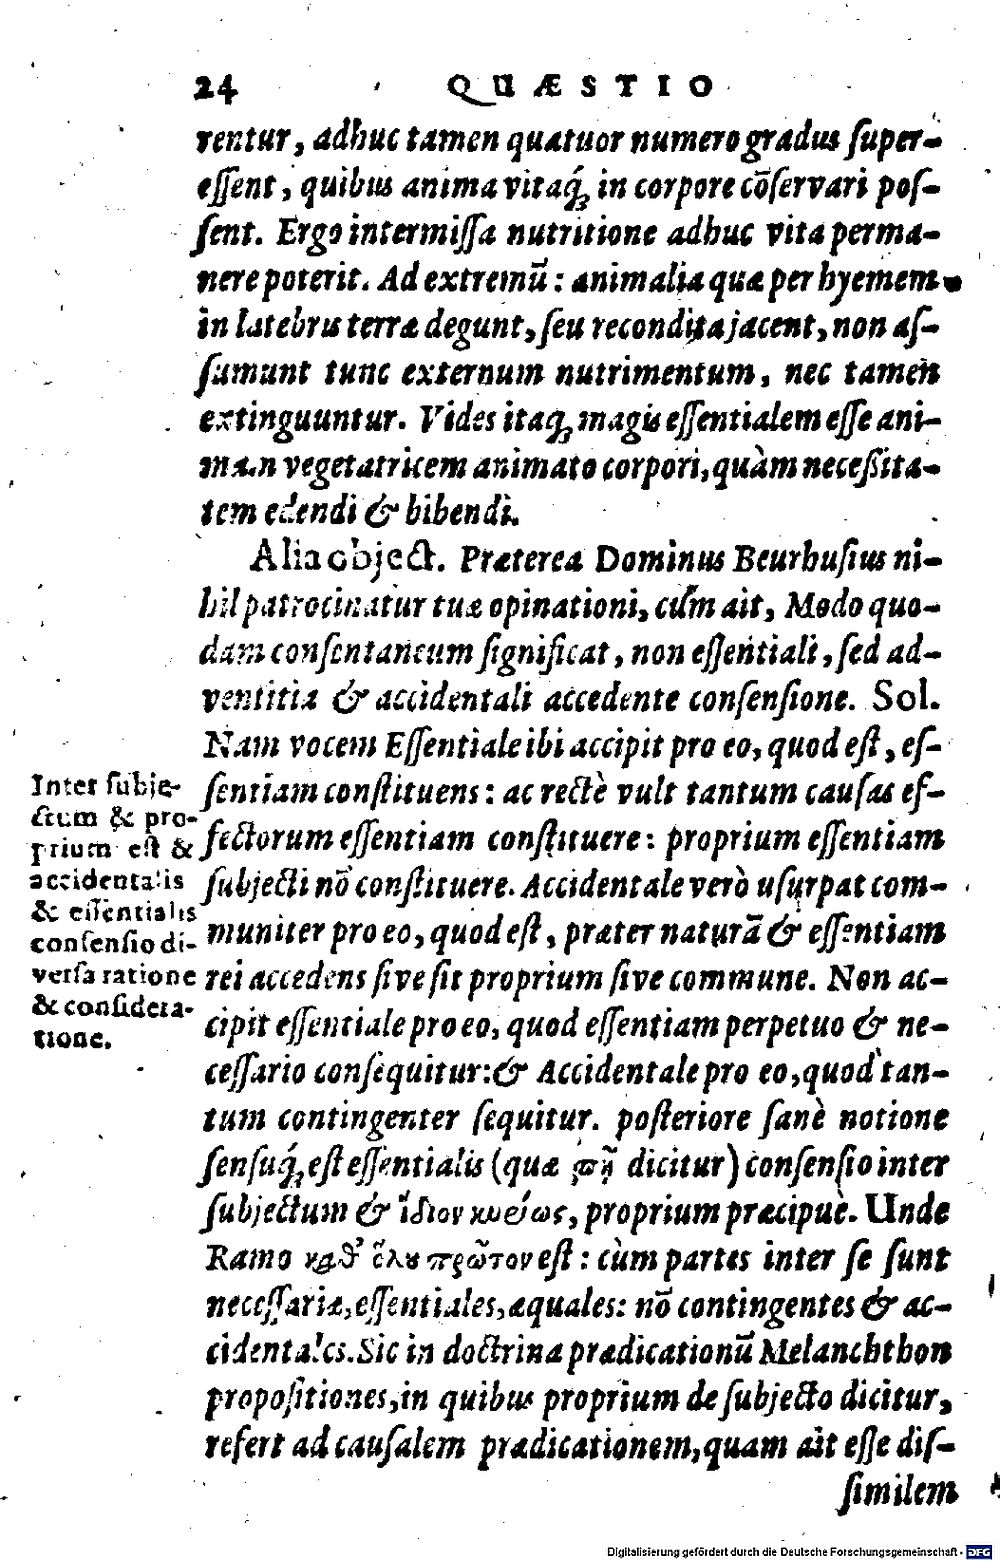 24 QUÆSTIO
rentur, adhuc tamen quatuor numero gradus ſuper-
eſſent, quibus anima vitaq́; in corpore cōſervari poſ-
ſent. Ergo intermiſſa nutritione adhuc vita perma-
nere poterit. Ad extremũ: animalia quæ per hyemem
in latebris terræ degunt, ſeu recondita jacent, non aſ-
ſumunt tunc externum nutrimentum, nec tamen
extinguuntur. Vides itaq; magis eſſentialem eſſe ani-
man vegetatricem animato corpori, quàm neceßita-
tem edendi & bibendi.
Alia object. Præterea Dominus Beurhuſius ni-
hil patrocinatur tuæ opinationi, cùm ait, Modo quo-
dam conſentaneum ſignificat, non eſſentiali, ſed ad-
ventitia & accidentali accedente conſenſione. Sol.
Nam vocem Eſſentiale ibi accipit pro eo, quod eſt, eſ-
ſentiam conſtituens: ac rectè vult tantum cauſas ef-
fectorum eſſentiam conſtituere: proprium eſſentiam
ſubjecti nō conſtituere. Accidentale verò uſurpat com-
muniter pro eo, quod eſt, præter naturā & eſſentiam
rei accedens ſive ſit proprium ſive commune. Non ac-
cipit eſſentiale pro eo, quod eſſentiam perpetuo & ne-
ceſſario conſequitur: & Accidentale pro eo, quod tan-
tum contingenter ſequitur. poſteriore ſanè notione
ſenſuq́; eſt eſſentialis (quæ πῆ dicitur) conſenſio inter
ſubjectum & ἴδιον κυρίως, proprium præcipuè. Unde
Ramo καθ' ὅλου πρῶτον eſt: cùm partes inter ſe ſunt
neceſſariæ, eſſentiales, æquales: nō contingentes & ac-
cidentales. Sic in doctrina prædicationũ Melanchthon
propoſitiones, in quibus proprium de ſubjecto dicitur,
refert ad cauſalem prædicationem, quam ait eſſe diſ-
ſimilem
Inter ſubje-
ctum & pro-
prium eſt &
accidentalis
& eſſentialis
conſenſio di-
verſa ratione
& conſidera-
tione.
Digitalisierung gefördert durch die Deutsche Forschungsgemeinschaft - DFG